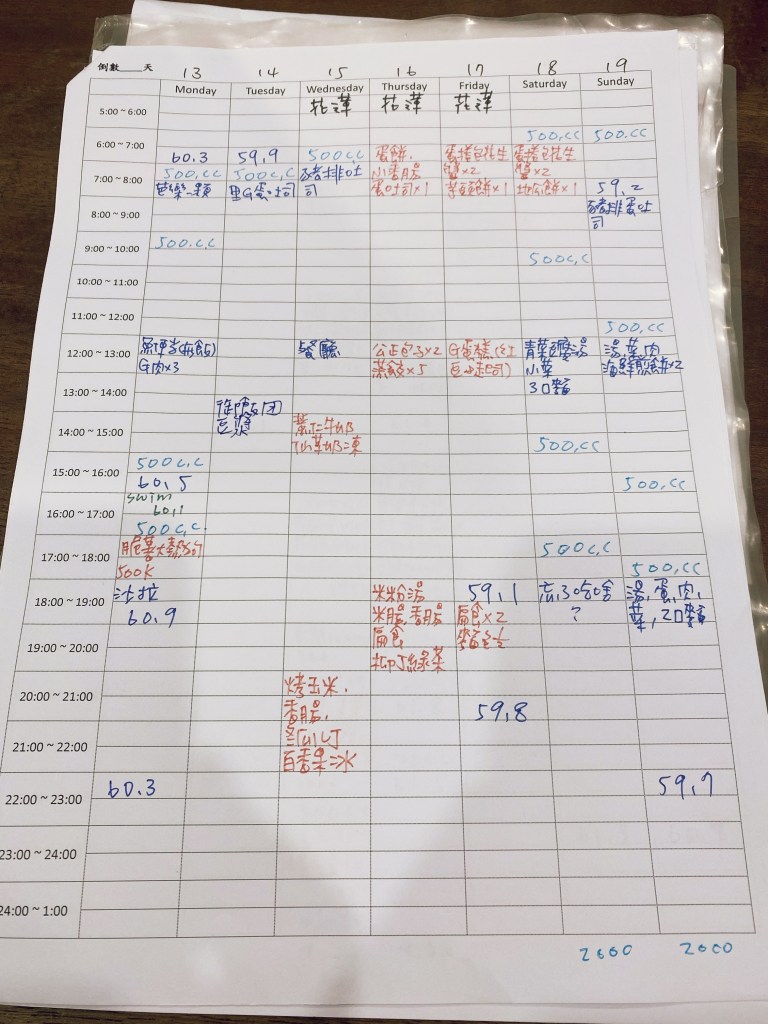 倒數____天 13 14 15 16 17 18 19
Monday Tuesday Wednesday Thursday Friday Saturday Sunday
5:00 ~ 6:00 花蓮 花蓮 花蓮
500.cc 500.cc
6:00 ~ 7:00 60.3 59.9 500cc 蛋餅. 蛋捲包花生 蛋捲包花生
7:00 ~ 8:00 500.cc 500c,c 豬排吐 小香腸 醬×2 醬×2 59.2
芭樂一顆 里G蛋吐司 司 蛋吐司×1 芋頭餅×1 地瓜餅×1 豬排蛋吐
8:00 ~ 9:00 司
9:00 ~ 10:00 500.c.c 500c,c
10:00 ~ 11:00
11:00 ~ 12:00 500,cc
12:00 ~ 13:00 餐廳 公正包子×2 G蛋糕(紅 青菜豆腐湯 湯,菜,肉
G肉×3 蒸餃×5 小菜 海鮮煎餅×2
13:00 ~ 14:00 3口麵
飯团
豆漿
14:00 ~ 15:00 500,cc
15:00 ~ 16:00 500c,c 500,cc
60,5
swim
16:00 ~ 17:00 60,1
500c,c.
17:00 ~ 18:00 500c,c 500,cc
500K
18:00 ~ 19:00 沙拉 米粉湯 59,1 忘了吃啥 湯,蛋,肉,
60.9 米腸,香腸 扁食×2 ? 菜,2口麵
19:00 ~ 20:00 扁食
20:00 ~ 21:00 烤玉米. 59,8
香腸.
21:00 ~ 22:00 百香果冰
22:00 ~ 23:00 60.3 59,7
23:00 ~ 24:00
24:00 ~ 1:00
2000 2000